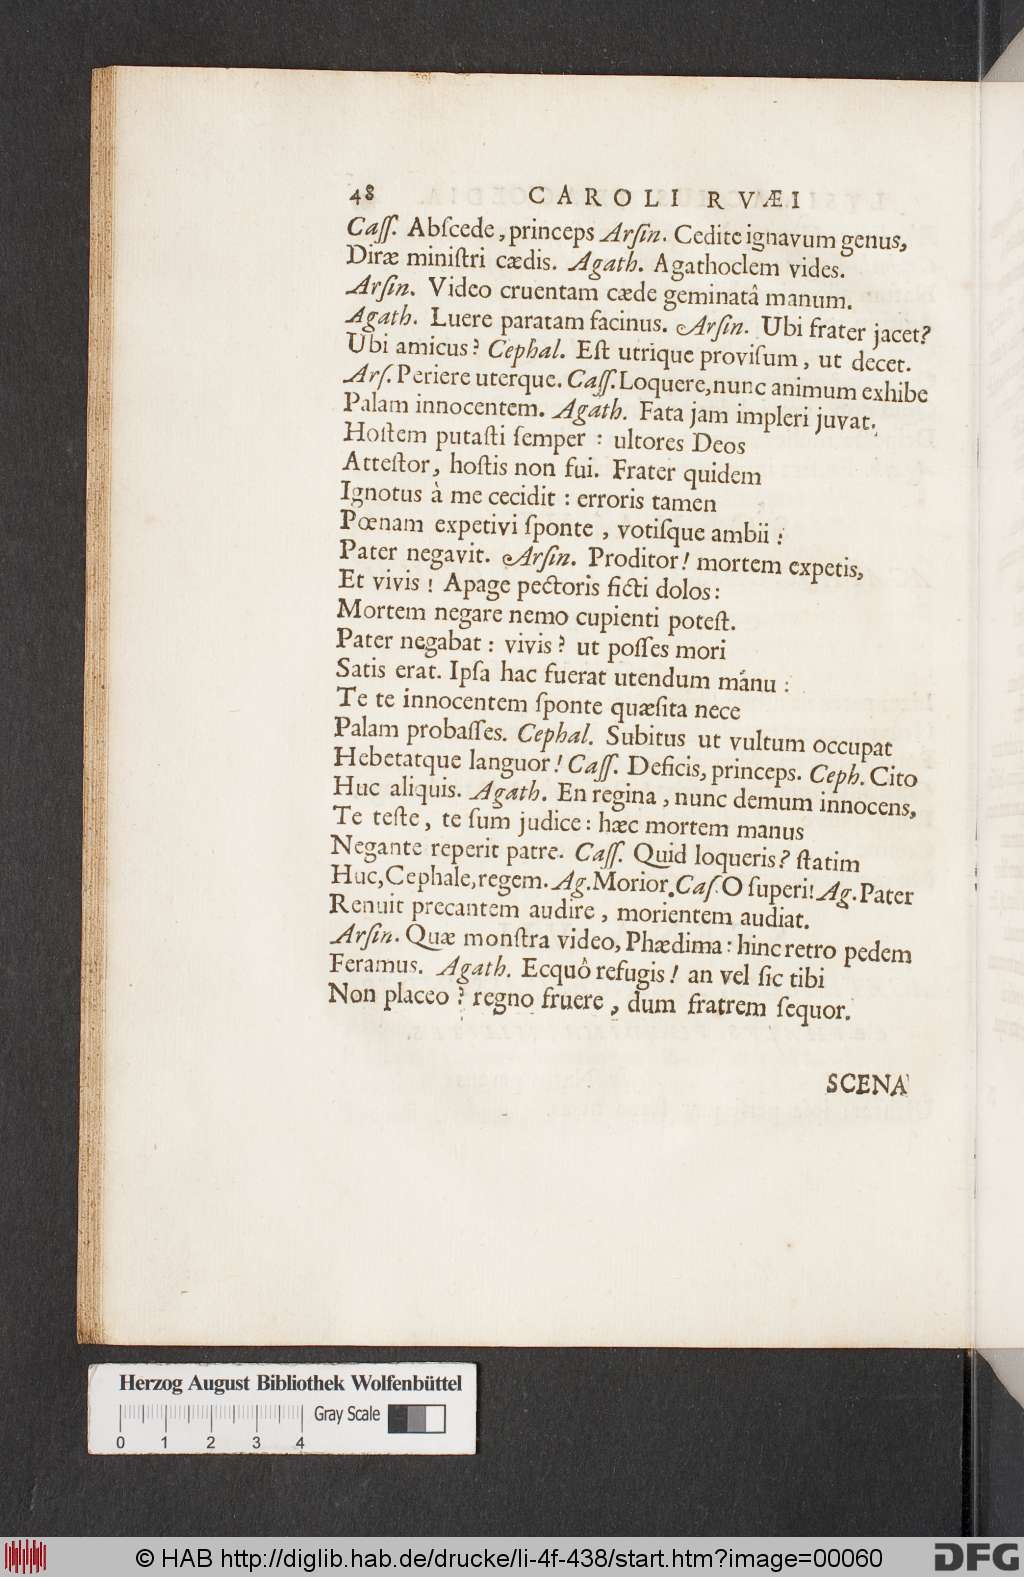 48 CAROLI RVÆI
Caſſ. Abſcede, princeps Arſin. Cedite ignavum genus,
Diræ miniſtri cædis. Agath. Agathoclem vides.
Arſin. Video cruentam cæde geminatâ manum.
Agath. Luere paratam facinus. Arſin. Ubi frater jacet?
Ubi amicus? Cephal. Eſt utrique proviſum, ut decet.
Arſ. Periere uterque. Caſſ. Loquere, nunc animum exhibe
Palam innocentem. Agath. Fata jam impleri juvat.
Hoſtem putaſti ſemper : ultores Deos
Atteſtor, hoſtis non fui. Frater quidem
Ignotus à me cecidit : erroris tamen
Pœnam expetivi ſponte, votiſque ambii :
Pater negavit. Arſin. Proditor! mortem expetis,
Et vivis! Apage pectoris ficti dolos:
Mortem negare nemo cupienti poteſt.
Pater negabat : vivis? ut poſſes mori
Satis erat. Ipſa hac fuerat utendum manu :
Te te innocentem ſponte quæſita nece
Palam probaſſes. Cephal. Subitus ut vultum occupat
Hebetatque languor! Caſſ. Deficis, princeps. Ceph. Cito
Huc aliquis. Agath. En regina, nunc demum innocens,
Te teſte, te ſum judice: hæc mortem manus
Negante reperit patre. Caſſ. Quid loqueris? ſtatim
Huc, Cephale, regem. Ag. Morior. Caſ. O ſuperi! Ag. Pater
Renuit precantem audire, morientem audiat.
Arſin. Quæ monſtra video, Phædima: hinc retro pedem
Feramus. Agath. Ecquô refugis! an vel ſic tibi
Non placeo? regno fruere, dum fratrem ſequor.
SCENA
Herzog August Bibliothek Wolfenbüttel
Gray Scale
0 1 2 3 4
© HAB http://diglib.hab.de/drucke/li-4f-438/start.htm?image=00060
DFG